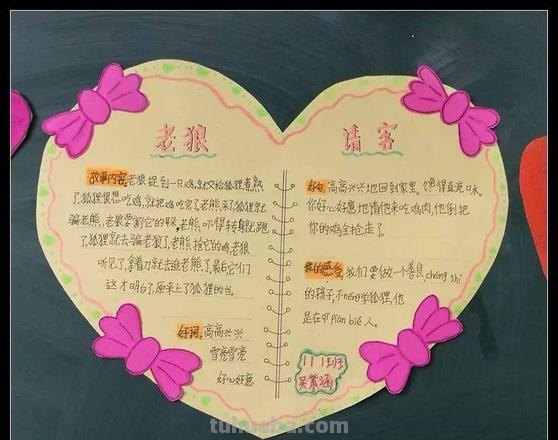 老狼 请客
故事内容:老狼捉到一只鸡,就交给狐狸煮熟
了,狐狸很想吃鸡,就把鸡吃完了,老熊来了,狐狸就
骗老熊,老狼要割它的耳朵,老熊吓得转身就跑
了,狐狸就去骗老狼了,老熊抢它的鸡,老狼
听见了,拿着刀就去追老熊了,最后它们
这才明白了,原来上了狐狸的当。
好词:高高兴兴
雪亮雪亮
好心好意
好句:高高兴兴地回到家里。馋得直流口水。
你好心好意地请他来吃鸡肉,他倒把
你的鸡全抢走了。
我的感受:我们要做一个善良、chéng shí
的孩子,不néng学狐狸,他
是在qī piàn bié人。
111班
吴紫涵
tulaoba.com